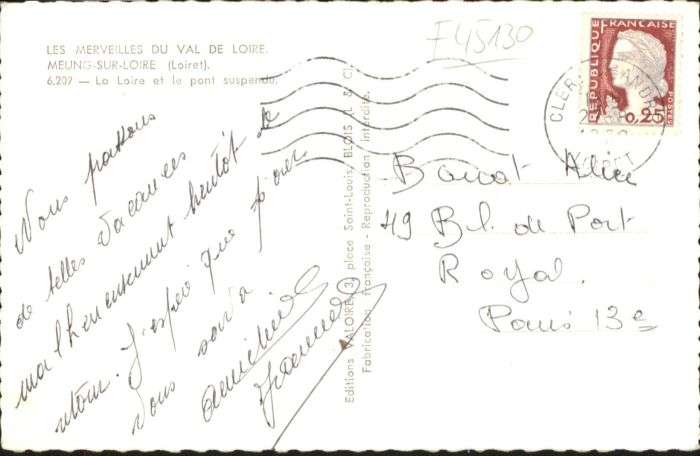 LES MERVEILLES DU VAL DE LOIRE.
MEUNG-SUR-LOIRE (Loiret).
6.207 — La Loire et le pont suspendu.
F45130
RÉPUBLIQUE FRANÇAISE
0,25
CLERY ANDRE
LOIRET
Nous passons
de belles vacances
malheureusement bientôt le
retour. J'espère que pour
vous sava
amicales
Editions VALOIRE, 3, place Saint-Louis, BLOIS (L. & C.)
Fabrication Française - Reproduction interdite.
Bonot
49 Bl. de Port
Royal.
Paris 13e